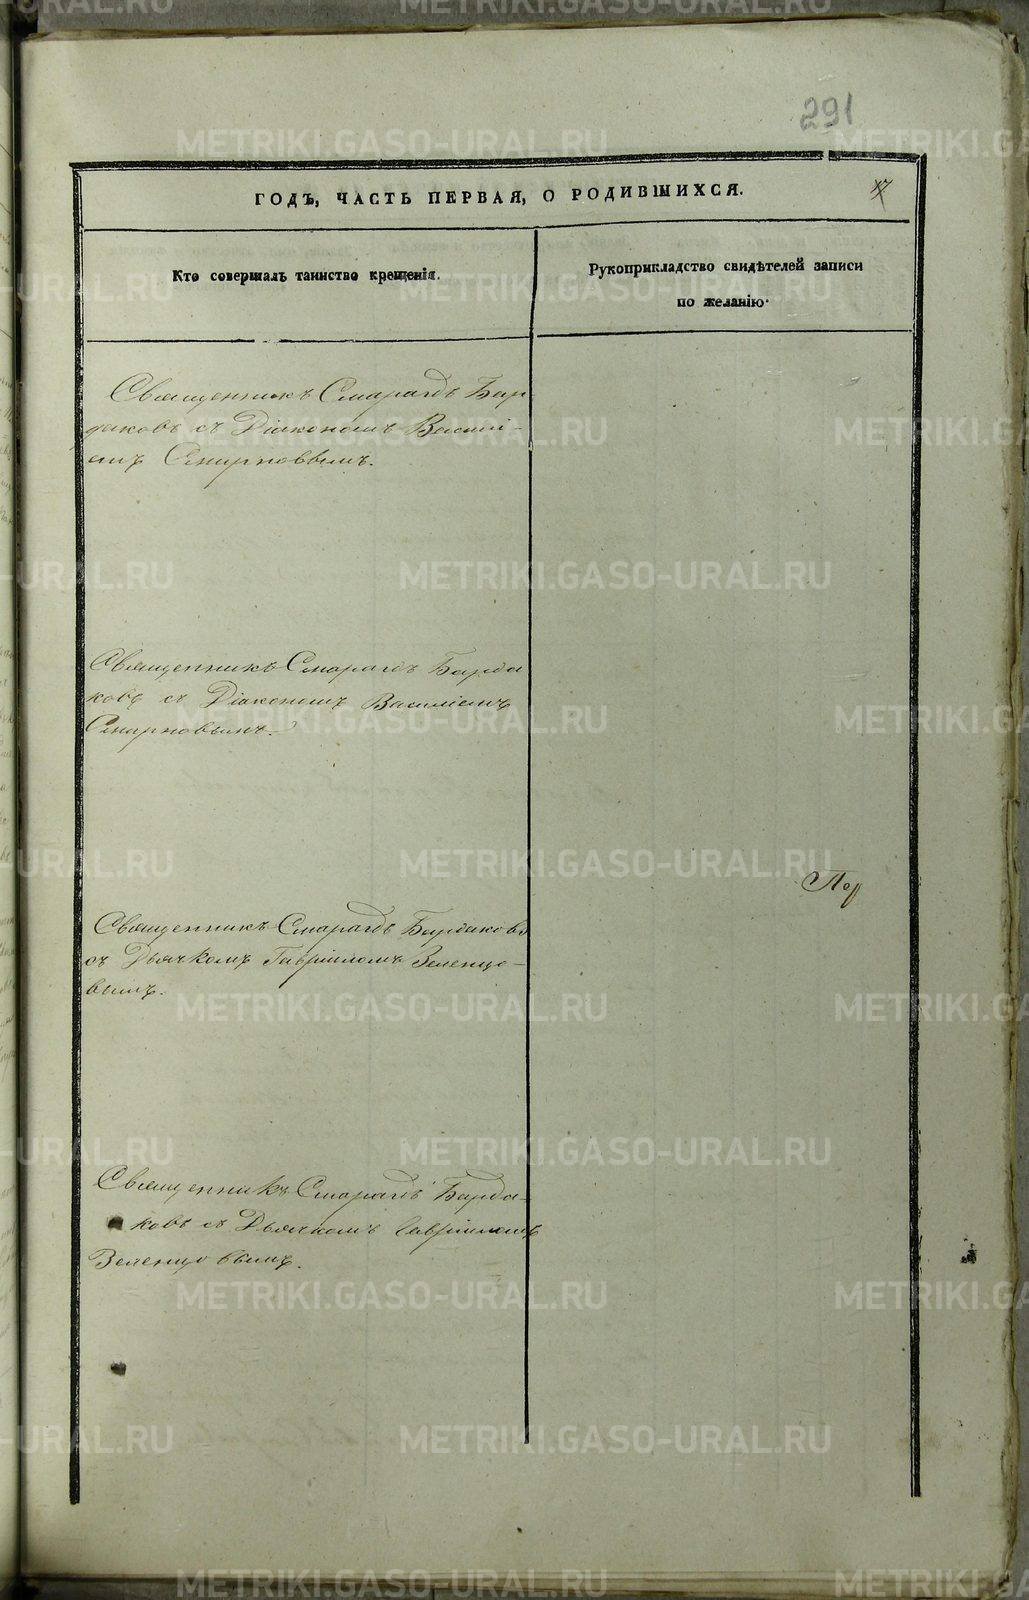 291
ГОДЪ, ЧАСТЬ ПЕРВАЯ, О РОДИВШИХСЯ.
Кто совершалъ таинство крещенія.
Рукоприкладство свидѣтелей записи
по желанію.
Священникъ Смарагдъ Бар
даковъ съ Діакономъ Василі-
емъ Смирновымъ.
Священникъ Смарагдъ Барда
ковъ съ Діакономъ Василіемъ
Смирновымъ.
По
Священникъ Смарагдъ Бардаковъ
съ Дьячкомъ Гавріиломъ Зеленцо-
вымъ.
Священникъ Смарагдъ Барда-
ковъ съ Дьячкомъ Гавріиломъ
Зеленцовымъ.
METRIKI.GASO-URAL.RU